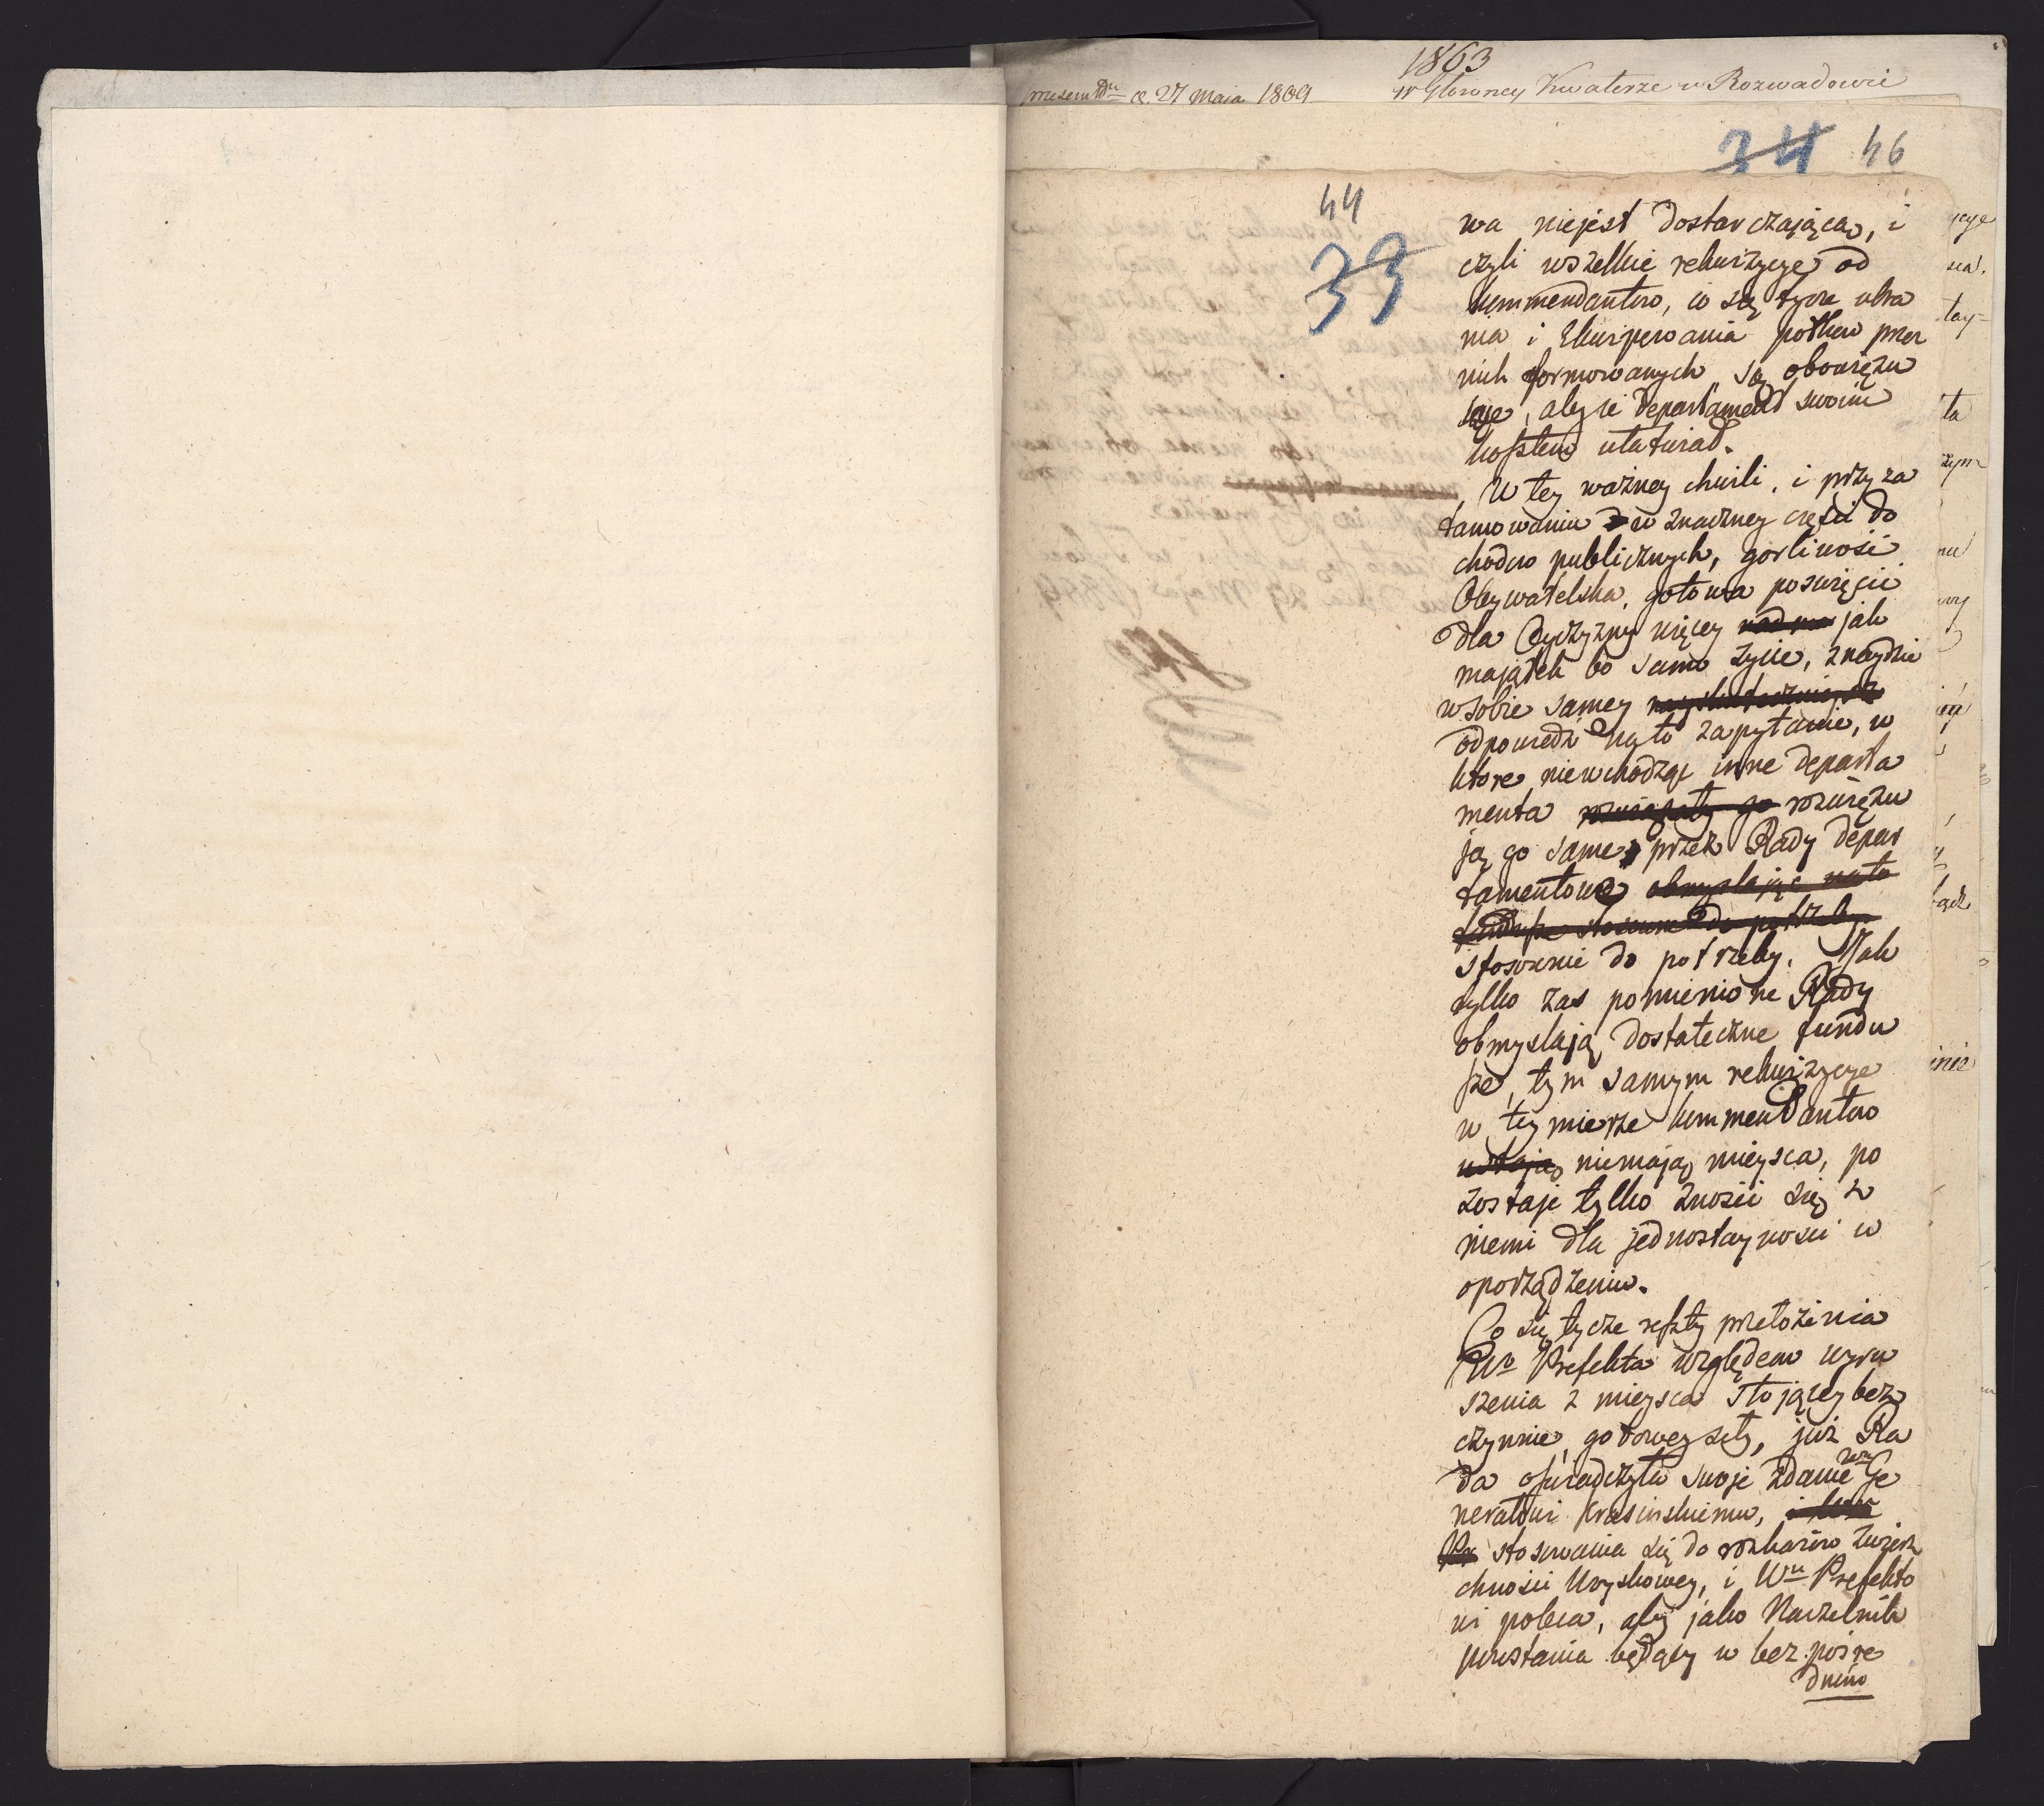 1863
praesent Dn d. 27 Maja 1809 W Głowney Kwaterze w Rozwadowie
34 46
44
33
wa niejest dostarczająca, i
czyli wszelkie rekwizycye od
kommendantow, co się tycze ubra
nia i Ekwipowania połkow przez
nich formowanych są obowięzu
jące, aby ie departament swoim
kosztem ułatwiał.
W tey ważney chwili, i przy za
tamowaniu w znaczney części do
chodow publicznych, gorliwość
Obywatelska, gotowa poswięcić
dla Oyczyzny więcey nad ma jak
majątek bo samo życie, znaydzie
w sobie samey nayskutecznieysz
odpowiedź na to zapytanie, w
ktore niewchodząc inne departa
menta rozwiązały go rozwięzu
ją go same przez Rady depar
tamentowe obmyslając na to
fundusze stosowne do potrzeby
stosownie do potrzeby. Jak
tylko zas pomienione Rady
obmyslają dostateczne fundu
sze, tym samym rekwizycye
w tey mierze kommendantow
ustają niemają mieysca, po
zostaje tylko znosić się z
niemi dla jednostayności w
oporządzeniu.
Co się tycze reszty przełożenia
Wo Prefekta względem wyru
szenia z mieysca stojącey bez
czynnie gotowey siły, już Ra
da oswiadczyła swoje zdanie Ge
nerałowi Krasinskiemu,
stosowania się do rozkazow Zwierz
chności Woyskowey, i Wu Prefekto
wi poleca, aby jako Naczelnik
powstania będący w bez pośre
dnim